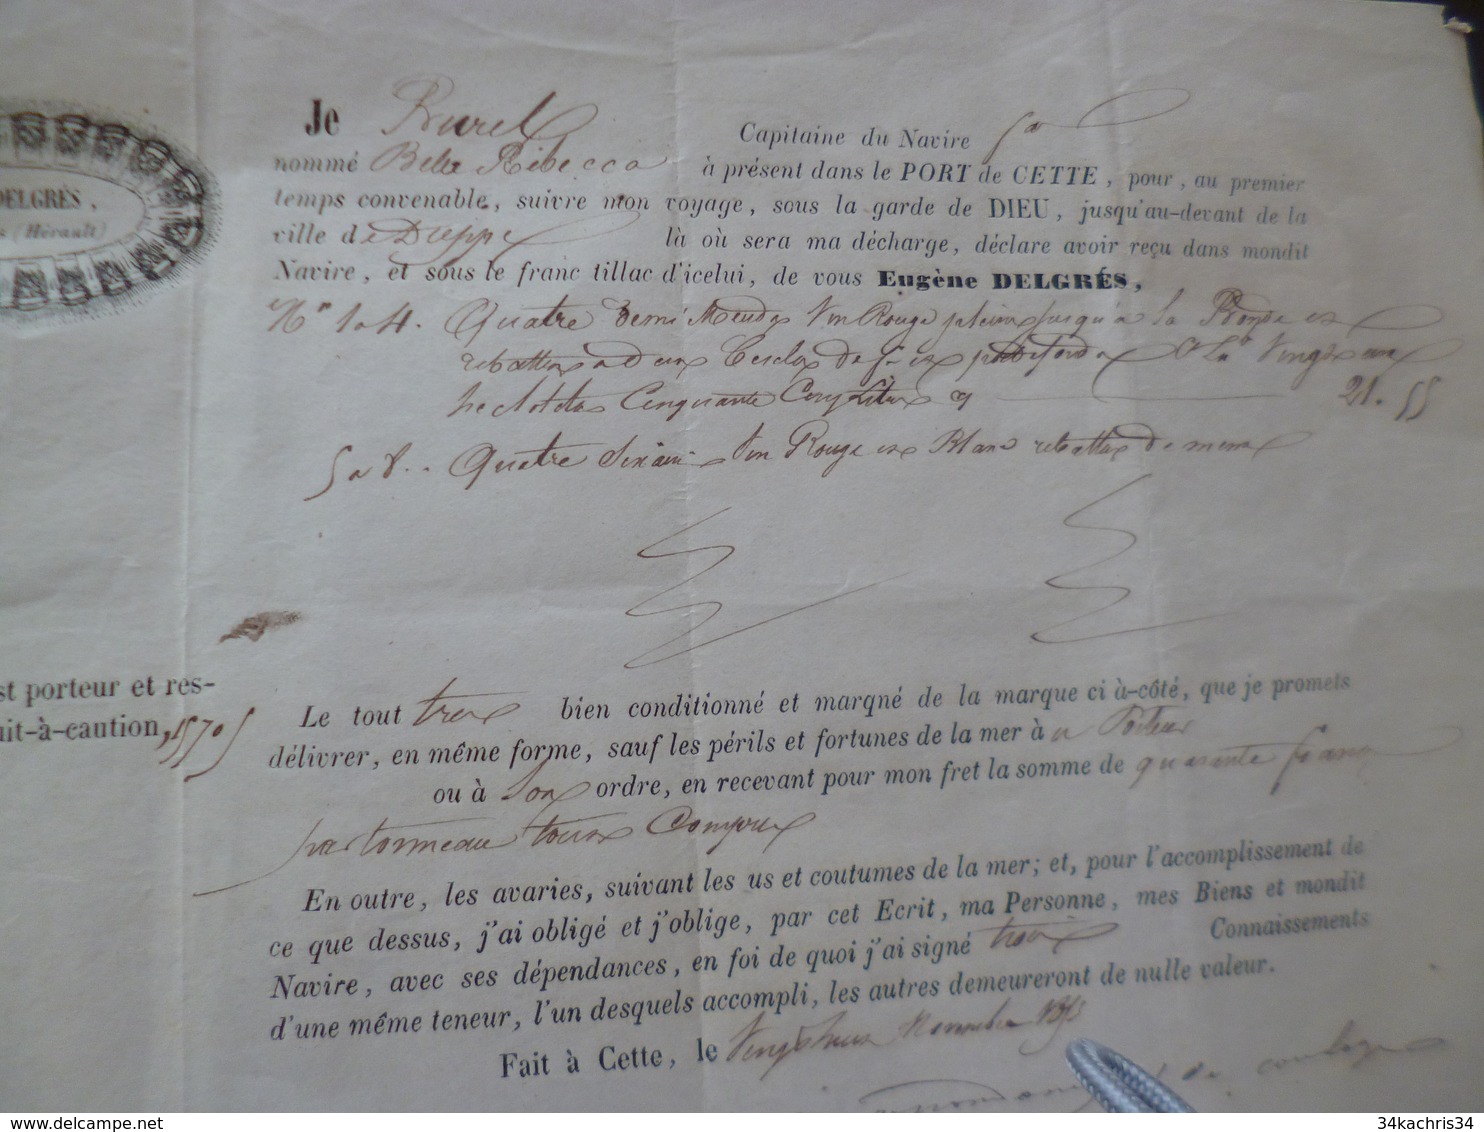 DELGRÈS,
(Hérault)
st porteur et res-
uit-à-caution, 15705
Je Burel Capitaine du Navire
nommé Belle Rebecca à présent dans le PORT de CETTE, pour, au premier
temps convenable, suivre mon voyage, sous la garde de DIEU, jusqu'au-devant de la
ville de Dieppe là où sera ma décharge, déclare avoir reçu dans mondit
Navire, et sous le franc tillac d'icelui, de vous Eugène DELGRÉS,
Nº 1 a 4. Quatre Demi Muids Vin Rouge pleins jusqu'à la Bonde
a deux Cercles de fer
hectolitres Cinquante Cinq Litres 21.55
5 a 8. Quatre Sixains Vin Rouge Blanc de meme
Le tout bien conditionné et marqné de la marque ci à-côté, que je promets
délivrer, en même forme, sauf les périls et fortunes de la mer à Porteur
ou à Son ordre, en recevant pour mon fret la somme de quarante francs
par tonneau tous Compris
En outre, les avaries, suivant les us et coutumes de la mer; et, pour l'accomplissement de
ce que dessus, j'ai obligé et j'oblige, par cet Ecrit, ma Personne, mes Biens et mondit
Navire, avec ses dépendances, en foi de quoi j'ai signé trois Connaissements
d'une même teneur, l'un desquels accompli, les autres demeureront de nulle valeur.
Fait à Cette, le Novembre
34kachris34